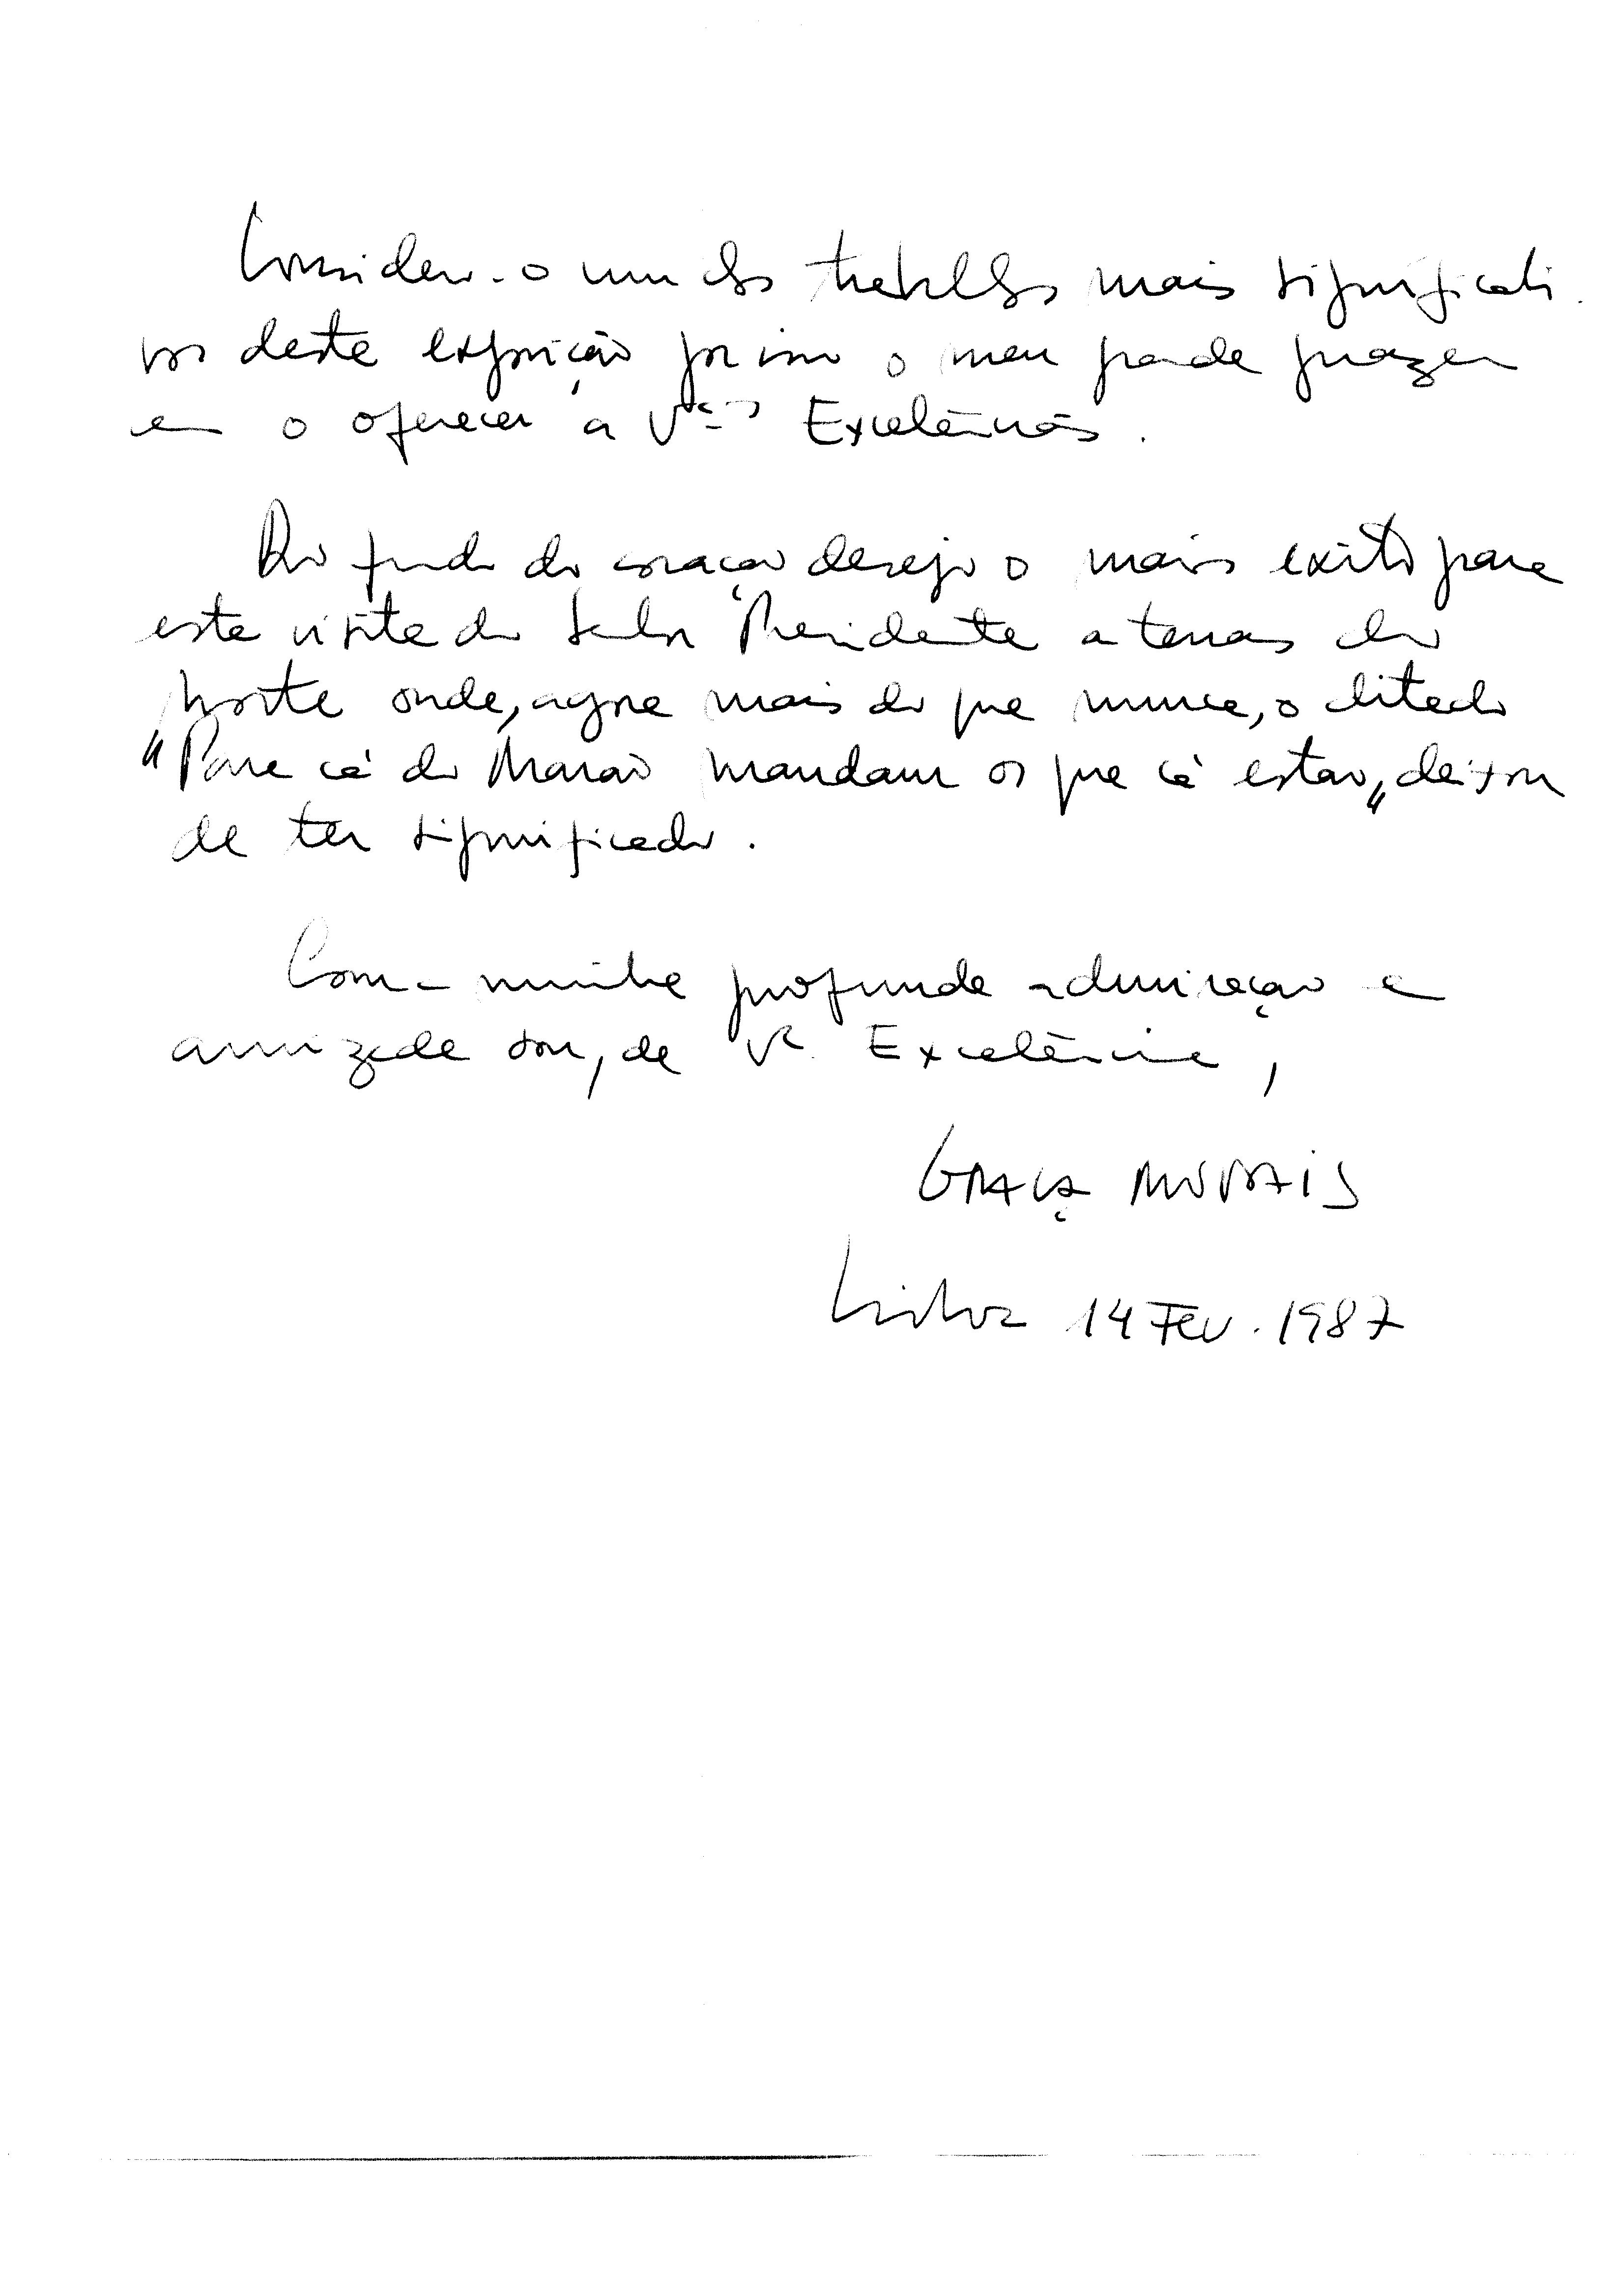 Considero-o um dos trabalhos mais significati
vos desta exposição por isso o meu grande prazer
em o oferecer a V.as Excelências.
Do fundo do coração desejo o maior exito para
esta visita do Senhor Presidente a terras do
Norte onde, agora mais do que nunca, o ditado
"Para cá do Marão mandam os que cá estão" deixou
de ter significado.
Com a minha profunda admiração e
amizade sou, de V.a Excelência,
GRAÇA MORAIS
Lisboa 14 Fev. 1987